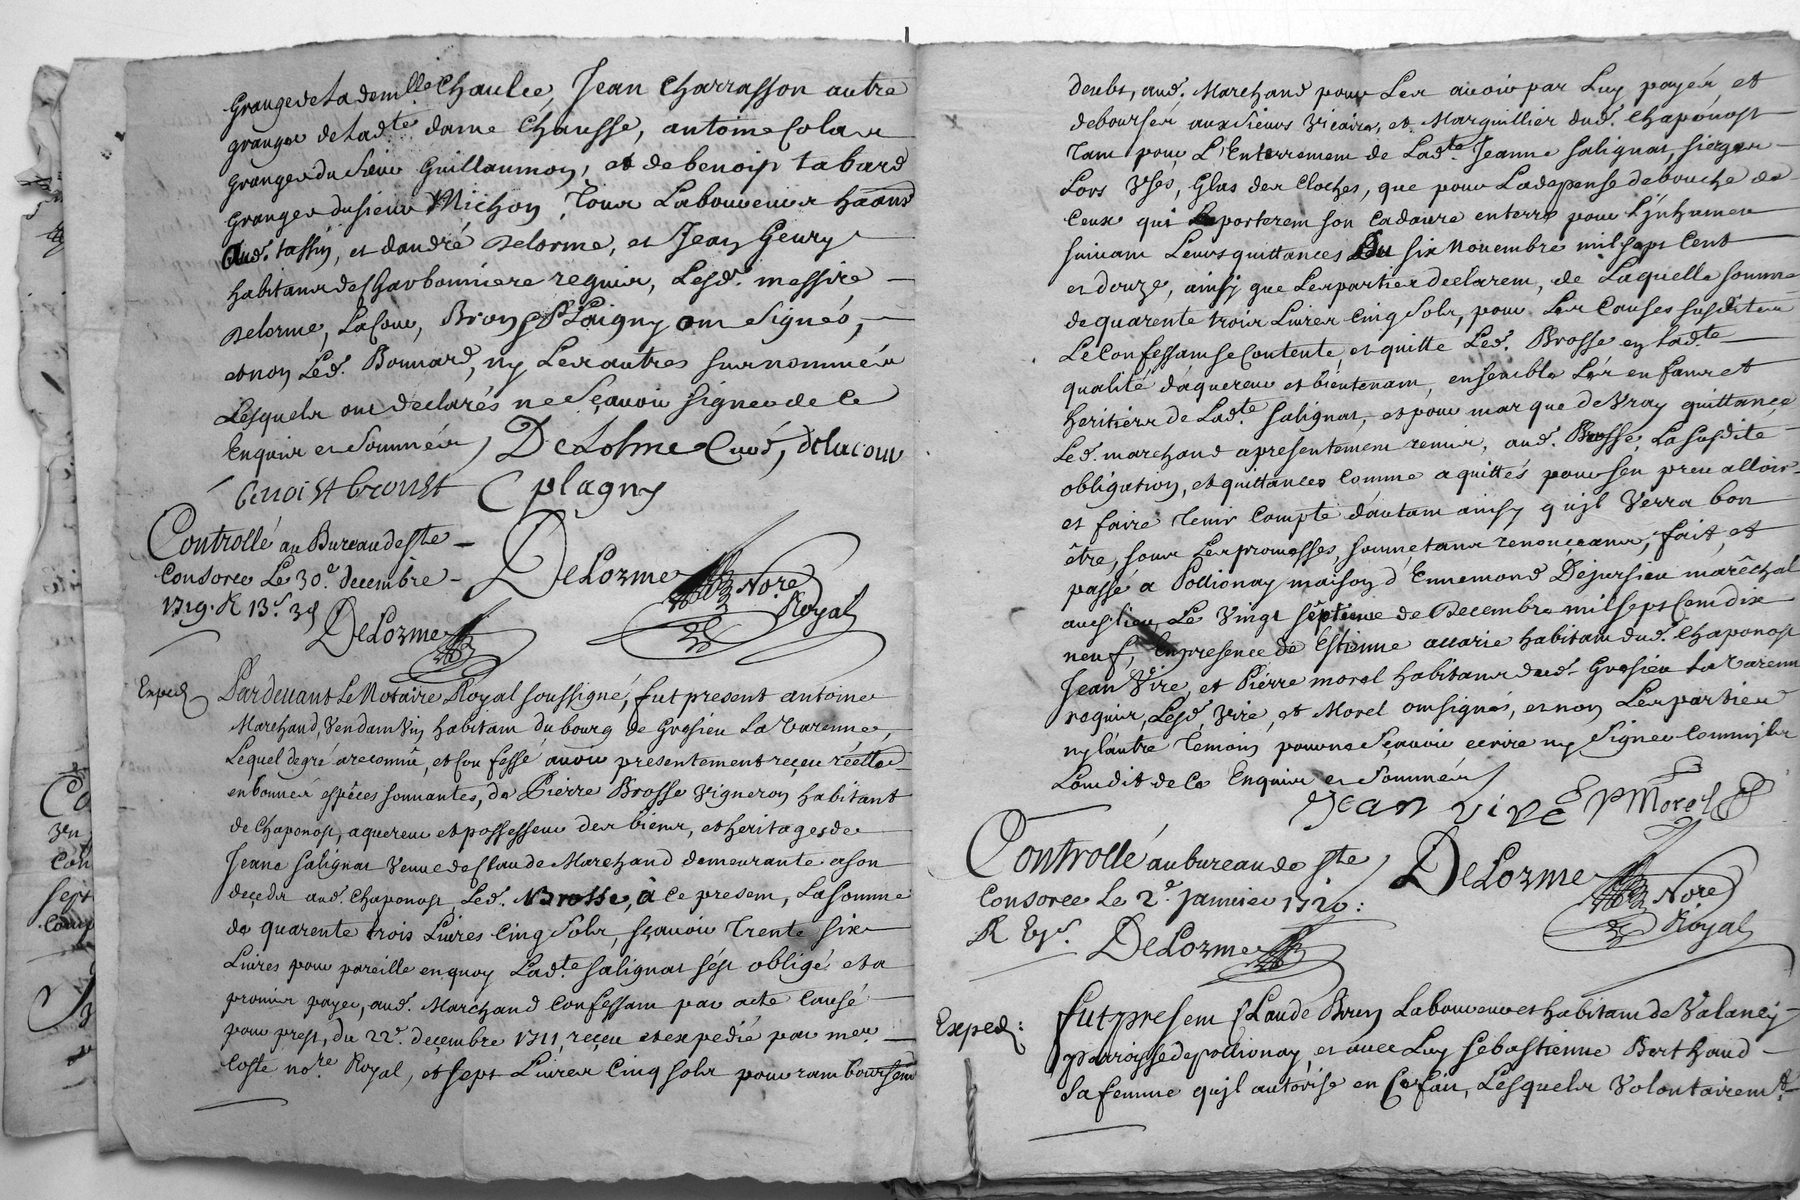 Granger de lad demlle Chaulce, Jean Charrasson autre
granger de ladte dame Chausse, antoine Colas
Granger du sieur Guillaumon, et de benoist tabard
Granger du sieur Michon, tous Laboureurs habitans
Aud. tassin, et d'andré delorme, et Jean Geury
habitans de Charbonniere requis, Lesd. messire
delorme, Lacour, Bron & Plaigny ont signés,
et non Led. Bonnard, ny Les autres surnommés
Lesquels ont declarés ne sçavoir signer de ce
Enquis et sommés / DeLolme Curé, delacour
benoist bronst C plagny
Controllé au Bureau de ste
Consorce Le 30e decembre
1719. R 13s 3d
DeLorme Nore Royal
DeLorme
Exped
Pardevant Le Notaire Royal soussigné, fut present antoine
Marchand, Vendant Vin habitant du bourg de Gresieu La Varenne,
Lequel de gré a reconnû, et confessé avoir presentement reçeu réellemt
en bonnes espêces sonnantes, de Piérre Brosse Vigneron habitant
de Chaponost, aquereur et possesseur des biens, et heritages de
Jeane Salignat Veuve de Claude Marchand demeurante a son
deçeds aud. Chaponost Led. Brosse, à ce present, La somme
de quarente trois Livres Cinq Sols, sçavoir Trente six
Livres pour pareille en quoy Ladte salignat s'est obligé et a
promis payer, aud. Marchand Confessant par acte Causé
pour prest, du 22e. decembre 1711, reçeu et expedié par me
Coste nore Royal, et sept Livres Cinq sols pour ramboursemt
deubs, aud. Marchand pour Les avoir par Luy payés et
deboursés aux sieurs Vicaire, et Marguillier dud. Chaponost
Tant pour L'Enterrement de Ladte Jeanne salignat, sierges
Lors Usés, Glas des Cloches, que pour La depense de bouche de
Ceux qui porterent son Cadavre en terre pour L'jnhumer
suivant Leurs quittances Du six Novembre mil sept Cent
et douze, ainsy que Les parties declarent, de Laquelle somme
de quarente trois Livres Cinq Sols, pour Les Causes susdites
Le Confessant se Contente, et quitte Led. Brosse en ladte
qualité d'aquereur et biéntenant, ensemble Les enfans et
heritiers de Ladte salignat, et pour marque de Vray quittance
Led. marchand a presentement remis, aud. Brosse La susdite
obligation, et quittances Comme aquittés pour s'en prevalloir
et faire Tenir Compte d'autant ainsy qu'jl Verra bon
être, sous Les promesses, soumetans renonceans, fait, et
passé a Pollionay maison d'Ennemond Déjursieu marêchal
aud. lieu Le Vingt séptieme de Decembre mil sept Cent dix
neuf, En presence de Estienne accarie habitant dud. Chaponost
Jean Viré, et Piérre morel habitans dud. Gresieu La Varenne
requis, Lesd. Viré, et Morel ont signés, et non Les parties
ny l'autre Temoin pour ne Sçavoir ecrire ny Signer Comm'jls
L'ont dit de Ce Enquis et Sommés /
Jean Viré P Morel
Controllé au bureau de ste
Consorce Le 2e. Janvier 1720:
DeLorme Nore Royal
DeLorme
Exped:
fut present Claude Brun Laboureur et habitant de Valency
parroisse de pollionay, et avec Luy sebastienne Berthaud
Sa femme qu'jl autorise en Ce fait, Lesquels Volontairemt